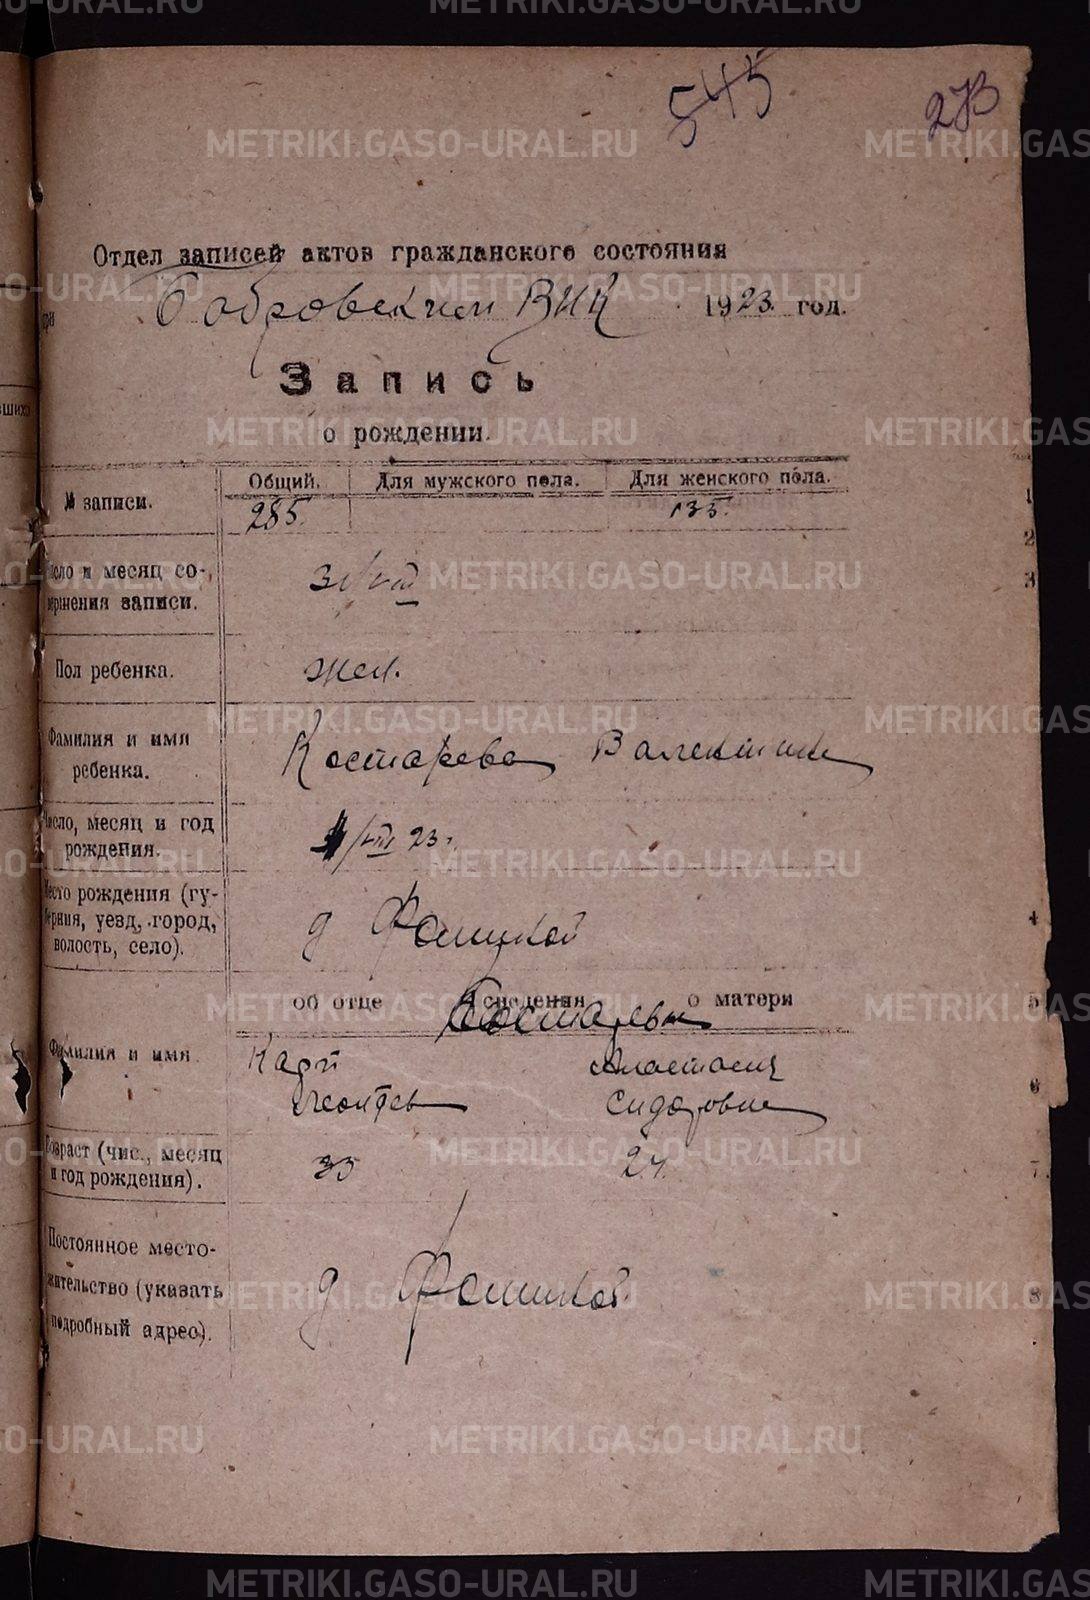 545
273
Отдел записей актов гражданского состояния
при Бобровском ВИК 1923 год.
Запись
о рождении.
№ записи.
Общий. Для мужского пола. Для женского пола.
285. 135.
Число и месяц со-
вершения записи.
31/VIII
Пол ребенка.
жен.
Фамилия и имя
ребенка.
Костарева Валентина
Число, месяц и год
рождения.
/VIII 23 г.
Место рождения (гу-
берния, уезд, город,
волость, село).
д Фомикой
об отце Сведения о матери
Костаревы
Фамилия и имя.
Карп Анастасия
Сидоровна
Возраст (чис., месяц
и год рождения).
35 24.
Постоянное место-
жительство (указать
подробный адрес).
д Фомикой
1
2
3
4
5
6
7
8
METRIKI.GASO-URAL.RU